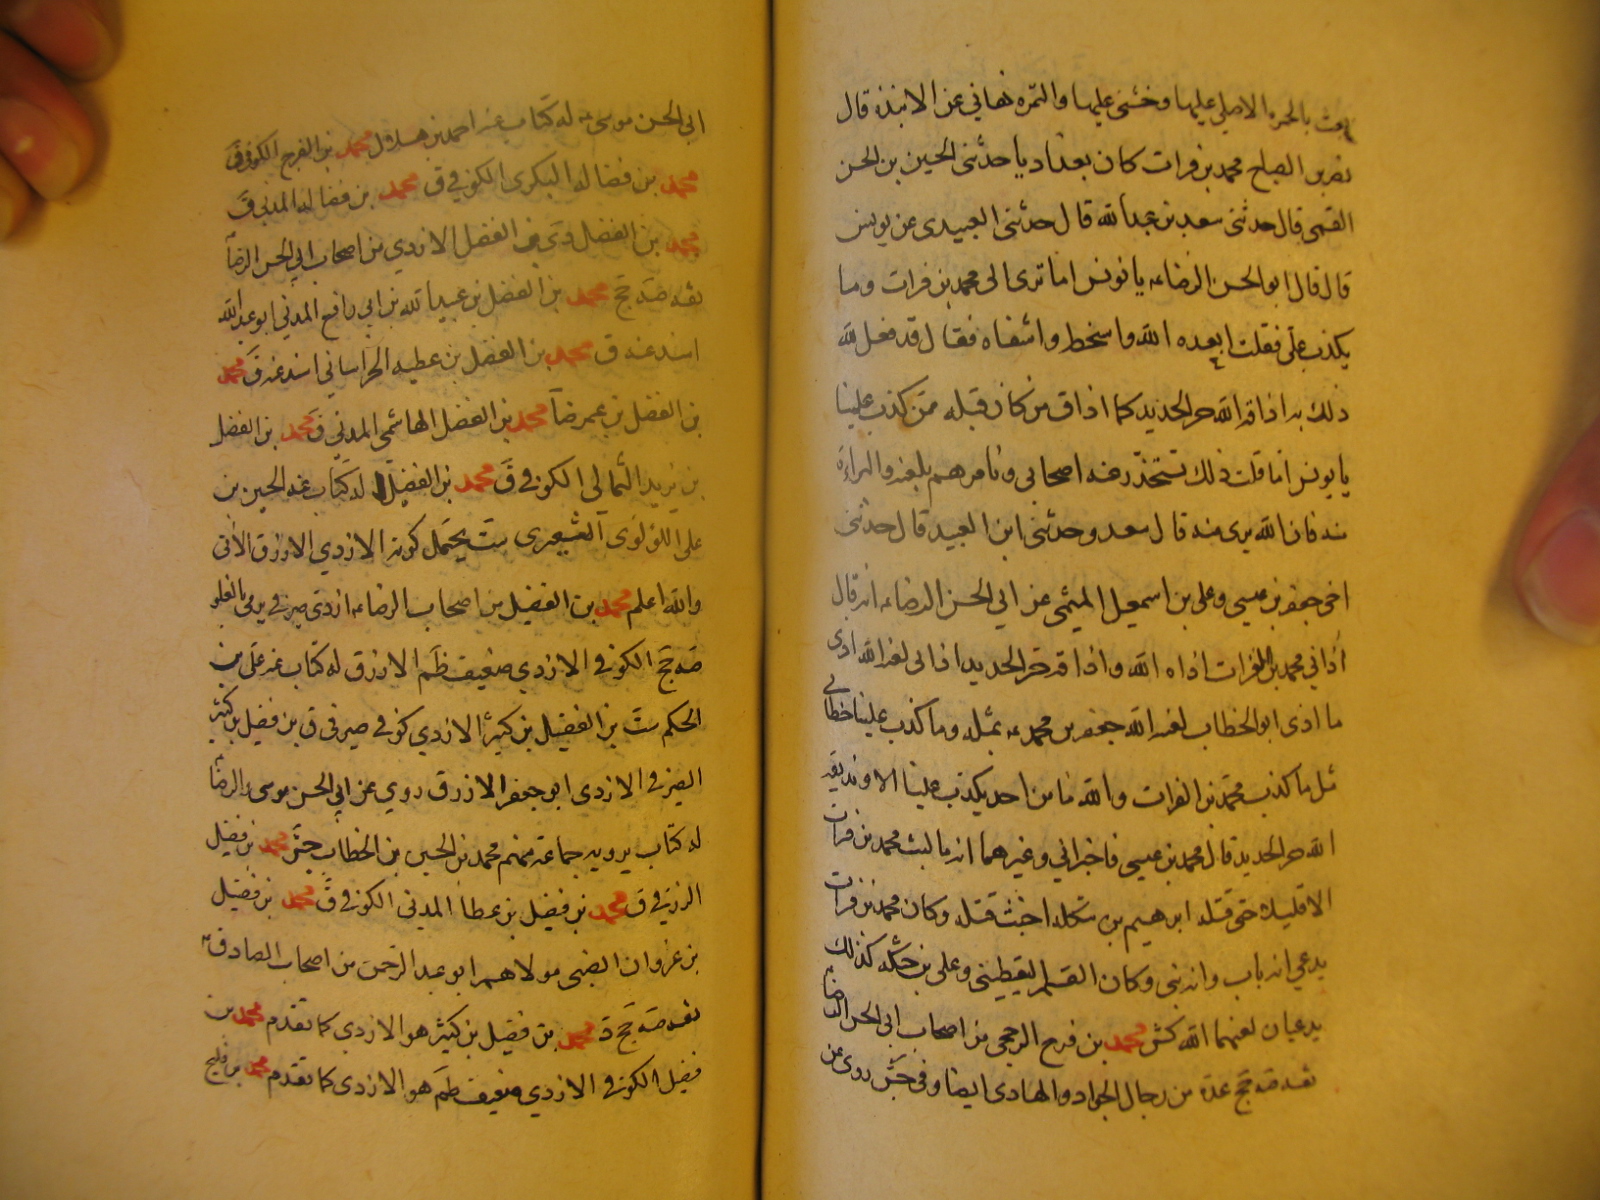 بعث بالحرة الا صلى عليها وخشى عليها والتمرة نهاني عن الانبذة قال
نصر بن الصباح محمد بن فرات كان بغداديا حدثني الحسين بن الحسن
القمى قال حدثنى سعد بن عبد الله قال حدثنى العبيدى عن يونس
قال قال ابو الحسن الرضا ع يا يونس اما ترى الى محمد بن فرات وما
يكذب على فقلت ابعده الله واسخطه واشقاه فقال قد فعل الله
ذلك به اذاقه الله حر الحديد كما اذاق من كان قبله ممن كذب علينا
يا يونس انما قلت ذلك لتحذر عنه اصحابى وتامرهم بلعنه والبراءة
منه فان الله برى منه قال سعد وحدثنى ابن العبيد قال حدثنى
اخى جعفر بن عيسى وعلى بن اسمعيل الميثمى عن ابي الحسن الرضا ع انه قال
اذاني محمد بن الفرات اذاه الله واذاقه حر الحديد اذانى لعنه الله اذى
ما اذى ابو الخطاب لعنه الله جعفر بن محمد ع بمثله وما كذب علينا خطابي
مثل ما كذب محمد بن الفرات والله ما من احد يكذب علينا الا ويذيقه
الله حر الحديد قال محمد بن عيسى فاخبراني وغيرهما انه ما لبث محمد بن فرات
الا قليلا حتى قتله ابرهيم بن شكله اخبث قتله وكان محمد بن فرات
يدعي انه باب وانه نبى وكان القسم اليقطينى وعلى بن حسكه كذلك
يدعيان لعنهما الله كش محمد بن فرج الرخجى من اصحاب ابى الحسن الرضا
ثقه صه جخ عده من رجال الجواد والهادى ايضا وفى جش روى عن
ابى الحسن موسى ع له كتاب عنه احمد بن هلال محمد بن الفرج الكوفى ق
محمد بن فضاله البكرى الكوفي ق محمد بن فضاله المدنى ق
محمد بن الفضل الازدي من اصحاب ابي الحسن الرضا
ثقه صه جخ محمد بن الفضل بن عبيد الله بن ابي رافع المدني ابو عبد الله
اسند عنه ق محمد بن الفضل بن عطيه الخراساني اسند عنه ق محمد
بن الفضل بن عمر ضا محمد بن الفضل الهاشمى المدني ق محمد بن الفضل
بن يزيد الثمالي الكوفى ق محمد بن الفضيل له كتاب عنه الحسين بن
على اللؤلؤى الشعيرى ست يحتمل كونه الازدي الازرق الاتى
والله اعلم محمد بن الفضيل من اصحاب الرضا ع ازدى صيرفى يرمى بالغلو
صه جخ الكوفى الازدي ضعيف ظم الازرق له كتاب عنه على بن
الحكم ست بن الفضيل بن كثير الازدي كوفى صيرفى ق بن فضيل بن كثير
الصيرفى الازدى ابو جعفر الازرق روي عن ابي الحسن موسى والرضا
له كتاب يرويه جماعة منهم محمد بن الحسين بن الخطاب جش محمد بن فضيل
الزرقى ق محمد بن فضيل بن عطا المدنى الكوفى ق محمد بن فضيل
بن غزوان الضبى مولاهم ابو عبد الرحمن من اصحاب الصادق ع
ثقه صه جخ د محمد بن فضيل بن كثير هو الازدي كما تقدم محمد بن
فضيل الكوفى الازدي ضعيف ظم هو الازدى كما تقدم محمد بن فليح